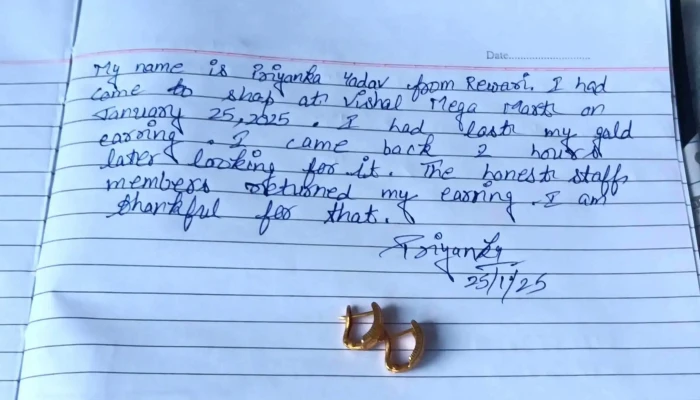 Date
My name is Priyanka Yadav from Rewari. I had
come to shop at Vishal Mega Mart on
January 25, 2025. I had lost my gold
earring. I came back 2 hours
later looking for it. The honest staffs
members returned my earring. I am
thankful for that.
Priyanka
25/1/25